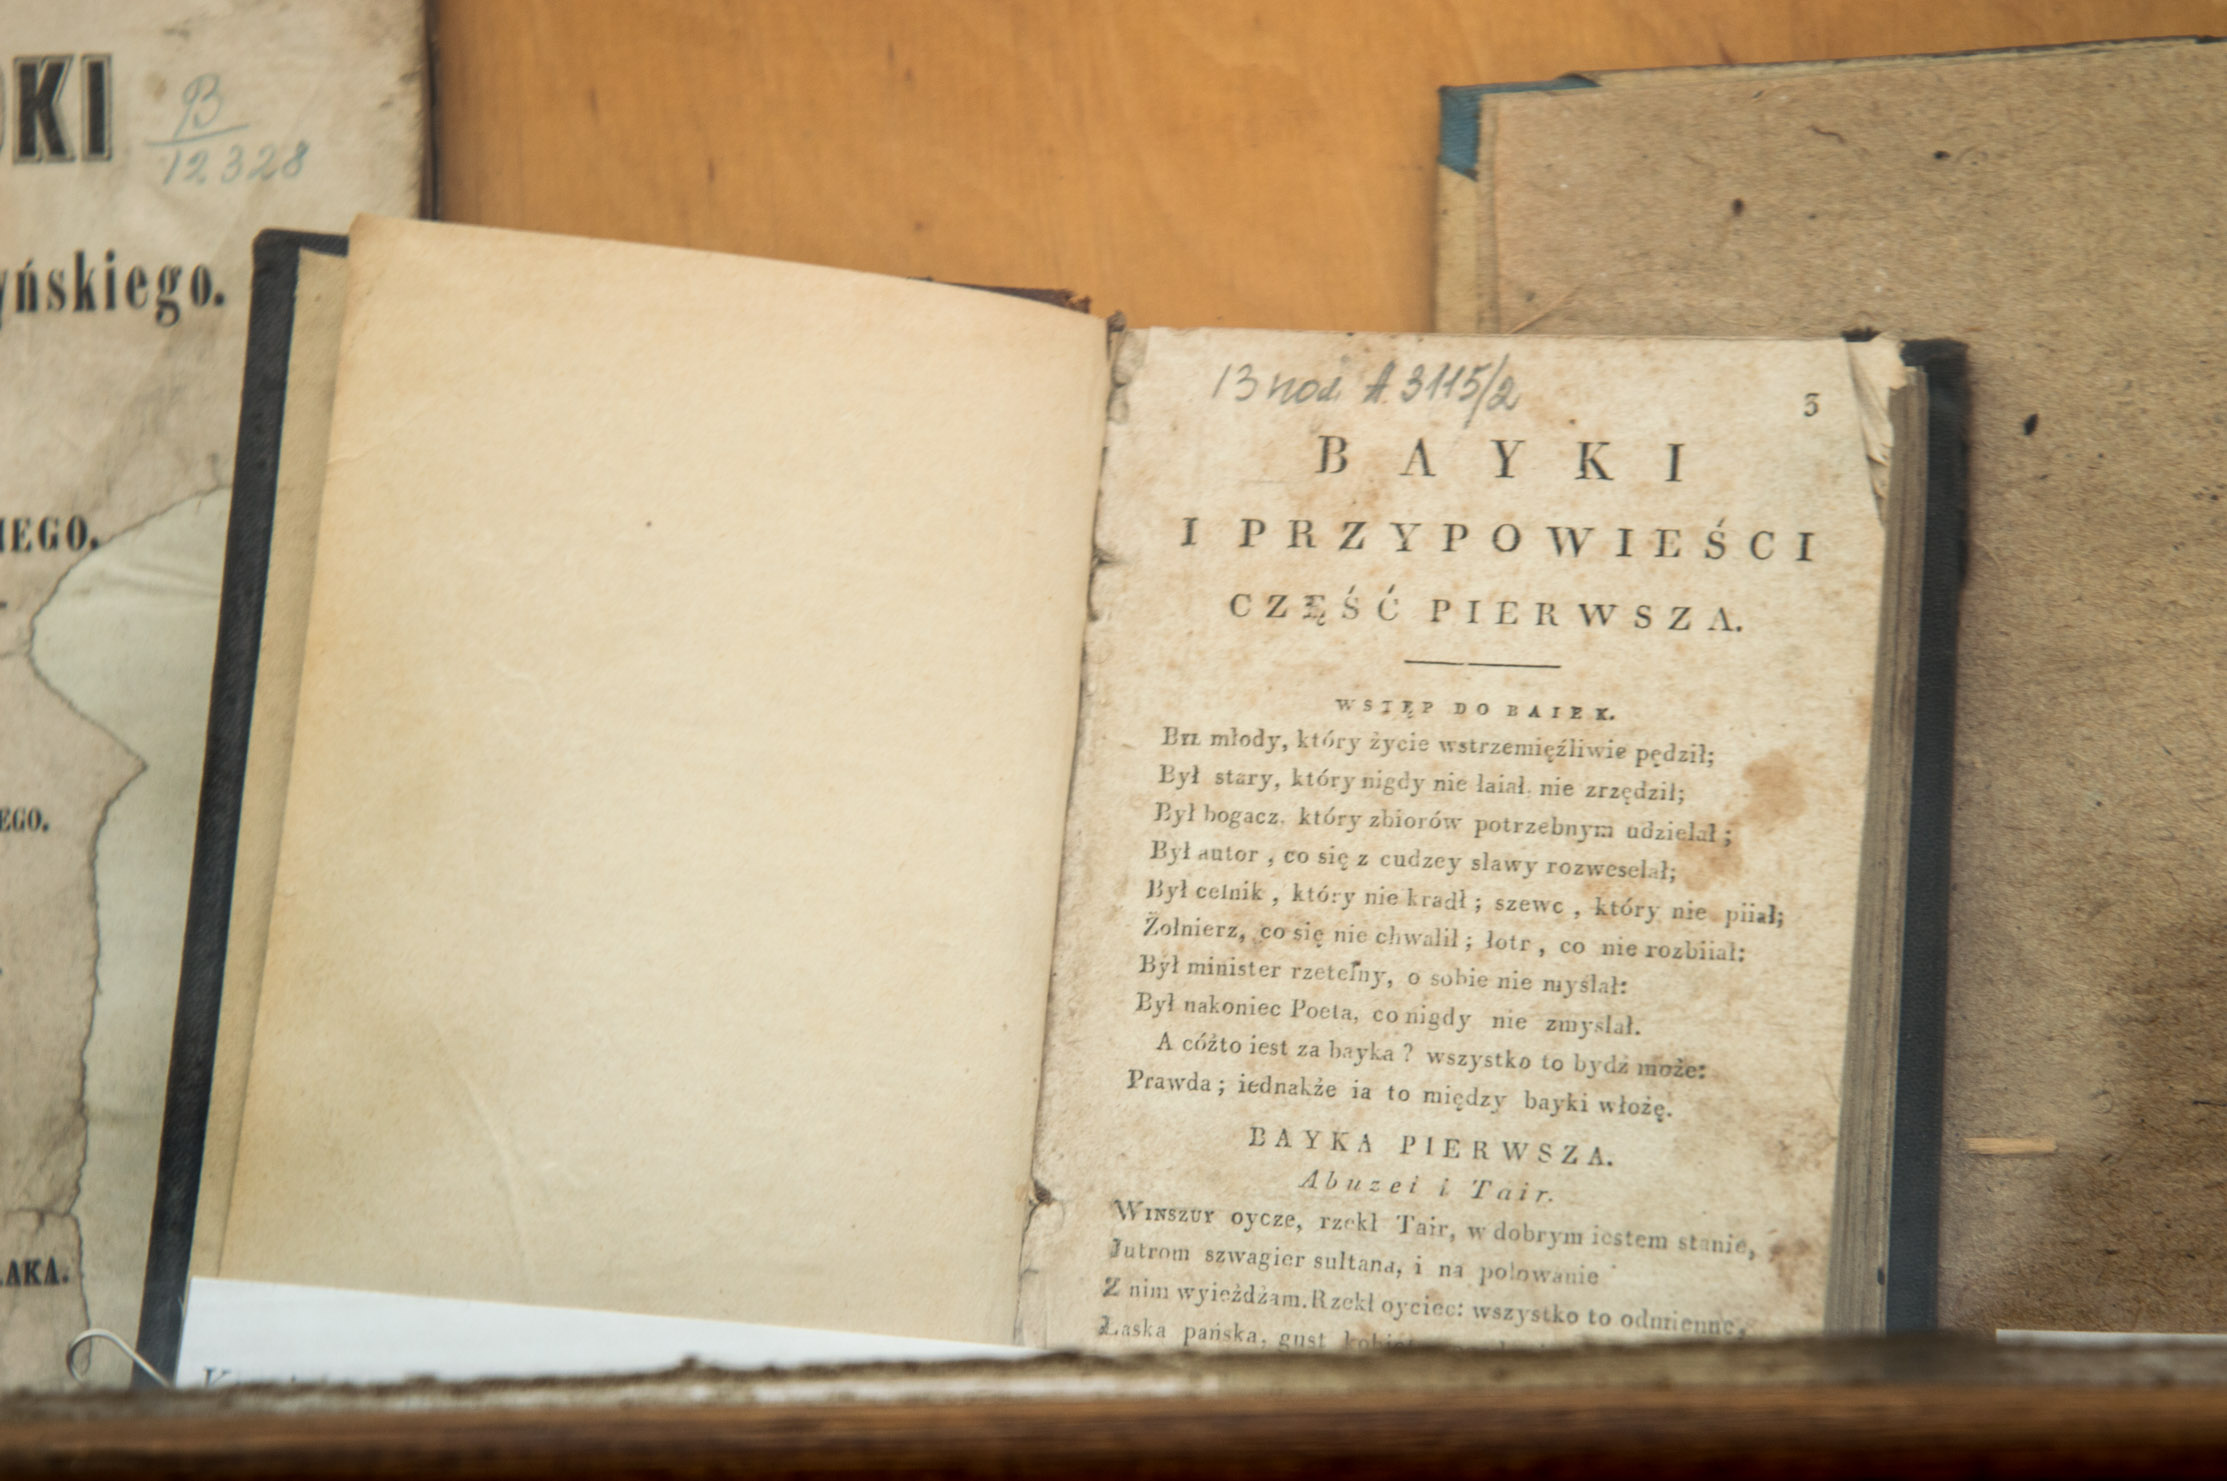 KI
B
12328
yńskiego.
IEGO.
EGO.
LAKA.
13 nod. A. 3115/2
3
BAYKI
I PRZYPOWIEŚCI
CZĘŚĆ PIERWSZA.
WSTĘP DO BAIEK.
Był młody, który życie wstrzemięźliwie pędził;
Był stary, który nigdy nie łaiał, nie zrzędził;
Był bogacz, który zbiorów potrzebnym udzielał;
Był autor, co się z cudzey sławy rozweselał;
Był celnik, który nie kradł; szewc, który nie piiał;
Żołnierz, co się nie chwalił; łotr, co nie rozbiiał:
Był minister rzetelny, o sobie nie myślał:
Był nakoniec Poeta, co nigdy nie zmyślał.
A cóżto iest za bayka? wszystko to bydź może:
Prawda; iednakże ia to między bayki włożę.
BAYKA PIERWSZA.
Abuzei i Tair.
WINSZUY oycze, rzekł Tair, w dobrym iestem stanie,
Jutrom szwagier sułtana, i na polowanie
Z nim wyieżdżam. Rzekł oyciec: wszystko to odmienne,
Łaska pańska, gust